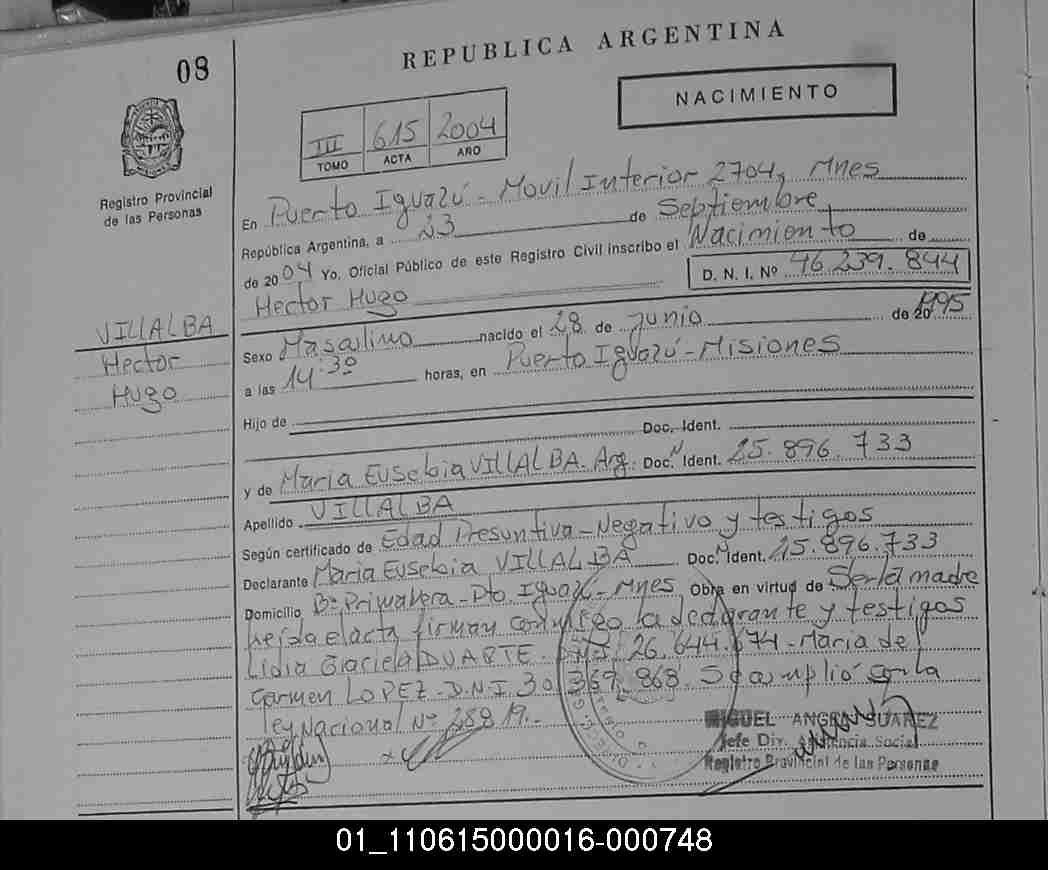 08
REPUBLICA ARGENTINA
NACIMIENTO
III 615 2004
TOMO ACTA AÑO
Registro Provincial
de las Personas
En Puerto Iguazú - Movil Interior 2704, Mnes
República Argentina, a 23 de Septiembre
de 2004 Yo. Oficial Público de este Registro Civil inscribo el Nacimiento de
Hector Hugo D. N. I. Nº 46 239.844
VILLALBA
Hector
Hugo
Sexo Masculino nacido el 28 de Junio de 20 1995
a las 14:30 horas, en Puerto Iguazú - Misiones
Hijo de
Doc. Ident.
y de Maria Eusebia VILLALBA. Arg. Doc. Ident. 25.896.733
Apellido VILLALBA
Según certificado de Edad Presuntiva - Negativo y testigos
Declarante Maria Eusebia VILLALBA Doc. Ident. 25.896.733
Domicilio Bº Primavera - Pto Iguazú - Mnes, Obra en virtud de Ser la madre
leída el acta firman conmigo la declarante y testigos
Lidia Graciela DUARTE. DNI. 26.644.674 - Maria del
Carmen LOPEZ - D.N.I 30.369.868. Se cumplió con la
ley Nacional Nº 25819.-
MIGUEL ANGEL SUAREZ
Jefe Div. Asistencia Social
Registro Provincial de las Personas
01_110615000016-000748